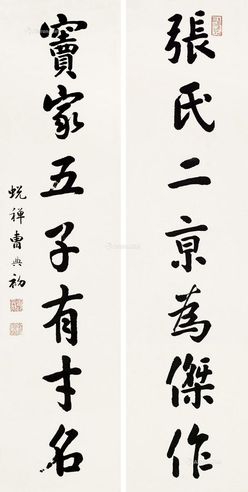 張氏二京為傑作
竇家五子有才名
蜕禅曹典初